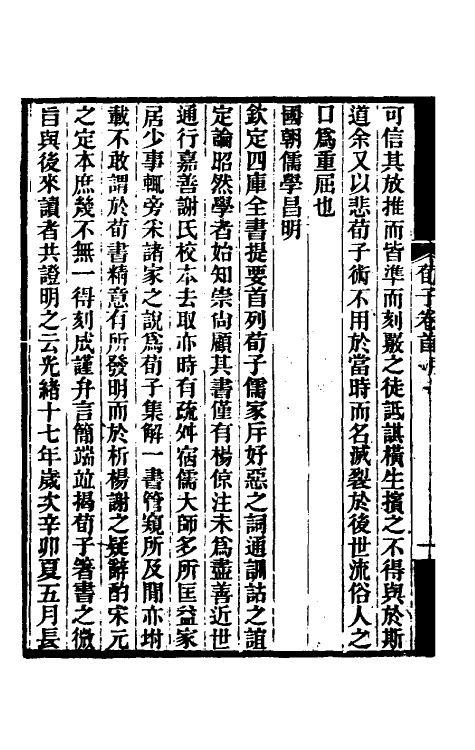 荀子卷首
一
可信其放推而皆準而刻覈之徒詆諆橫生擯之不得與於斯
道余又以悲荀子術不用於當時而名滅裂於後世流俗人之
口爲重屈也
國朝儒學昌明
欽定四庫全書提要首列荀子儒家斥好惡之詞通訓詁之誼
定論昭然學者始知崇尙顧其書僅有楊倞注未爲盡善近世
通行嘉善謝氏校本去取亦時有疏舛宿儒大師多所匡益家
居少事輒旁宷諸家之說爲荀子集解一書管窺所及閒亦坿
載不敢謂於荀書精意有所發明而於析楊謝之疑辭酌宋元
之定本庶幾不無一得刻成謹弁言簡端竝揭荀子箸書之微
旨與後來讀者共證明之云光緒十七年歲次辛卯夏五月長